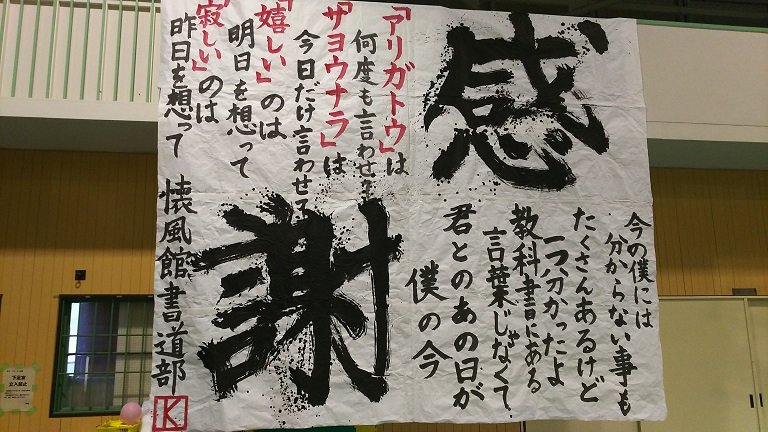 感謝
今の僕には
分からない事も
たくさんあるけど
一つ分かったよ
教科書にある
言葉じゃなくて
君とのあの日が
僕の今
「アリガトウ」は
何度も言わせて
「サヨウナラ」は
今日だけ言わせて
「嬉しい」のは
明日を想って
「寂しい」のは
昨日を想って
懐風館書道部
K
立入禁止